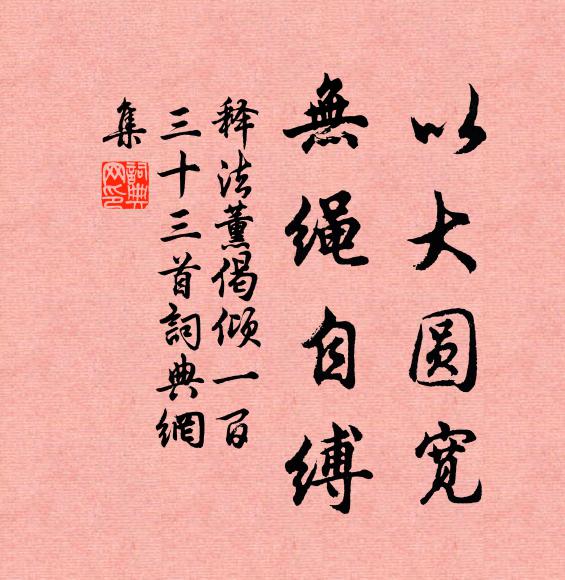 以大圆宽
無绳自缚
释法薰偈倾一百
三十三首詞典網
集
詞典网印